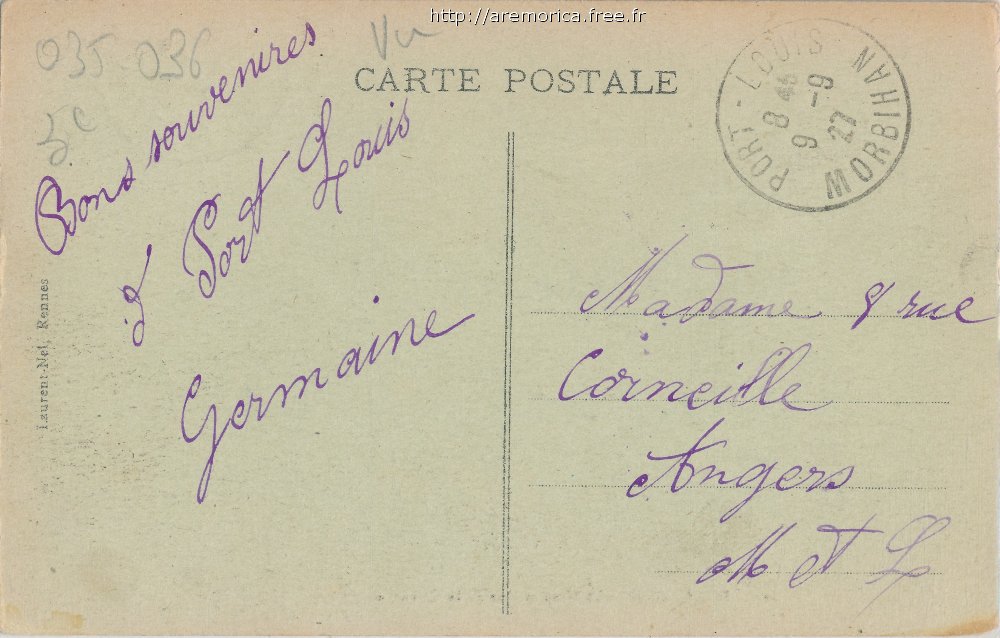 http://aremorica.free.fr
035 036
Vu
CARTE POSTALE
PORT-LOUIS MORBIHAN
8 45
9 -9
27
Bons souvenires
d Port Louis
Germaine
Laurent-Nel, Rennes
Madame 8 rue
Corneille
Angers
M et L